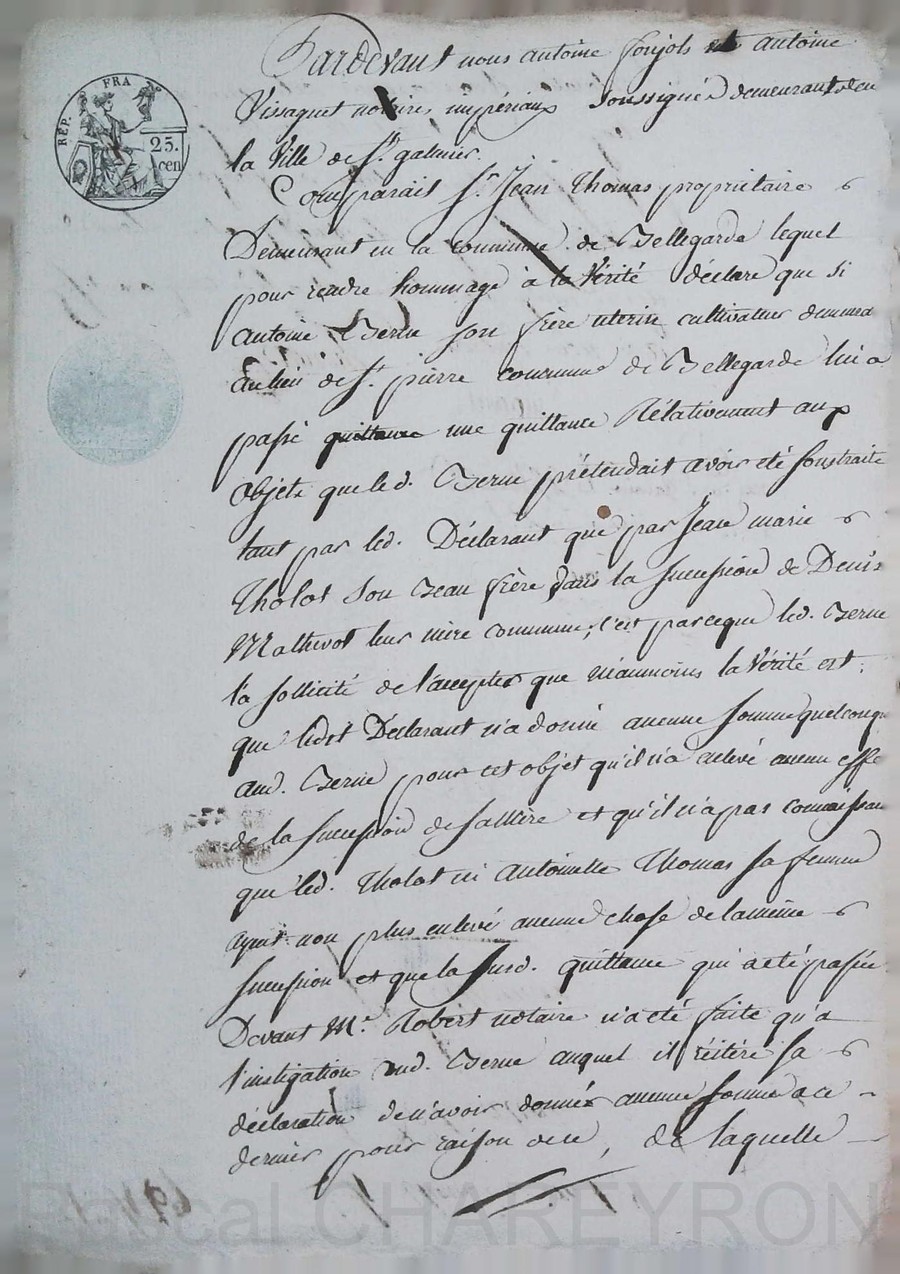 RÉP. FRA
25.
cen
Pardevant nous antoine foujols et antoine
Vissaguet notaires impériaux soussignés demeurants en
la Ville de St. galmier.
Comparait Sr. Jean Thomas propriétaire
Demeurant en la commune de Bellegarde lequel
pour rendre hommage à la Vérité déclare que si
antoine Berne son frère uterin cultivateur demeura
au lieu de St. pierre commune de Bellegarde lui a
passé quittance une quittance Rélativement aux
Objets que led. Berne prétendait avoir été soustraits
tant par led. Déclarant que par Jean marie
Tholot Son Beau frère dans la succession de Denise
Mathevot leur mère commune; c'est parceque led. Berne
l'a sollicité de l'accepter que néanmoins la Vérité est;
que ledit Déclarant n'a donné aucune somme quelconque
aud. Berne pour cet objet qu'il n'a enlevé aucun effe
de la succession de sa Mère et qu'il n'a pas connaissan
que led. Tholot ni Antoinette Thomas sa femme
ayent non plus enlevé aucune chose de la même
succession et que la susd. quittance qui a été passée
Devant Me. Robert notaire n'a été faite qu'a
l'instigation dud. Berne auquel il réitère sa
déclaration de n'avoir donnés aucune somme a ce
dernier pour raison de ce, de laquelle
Pascal CHAREYRON